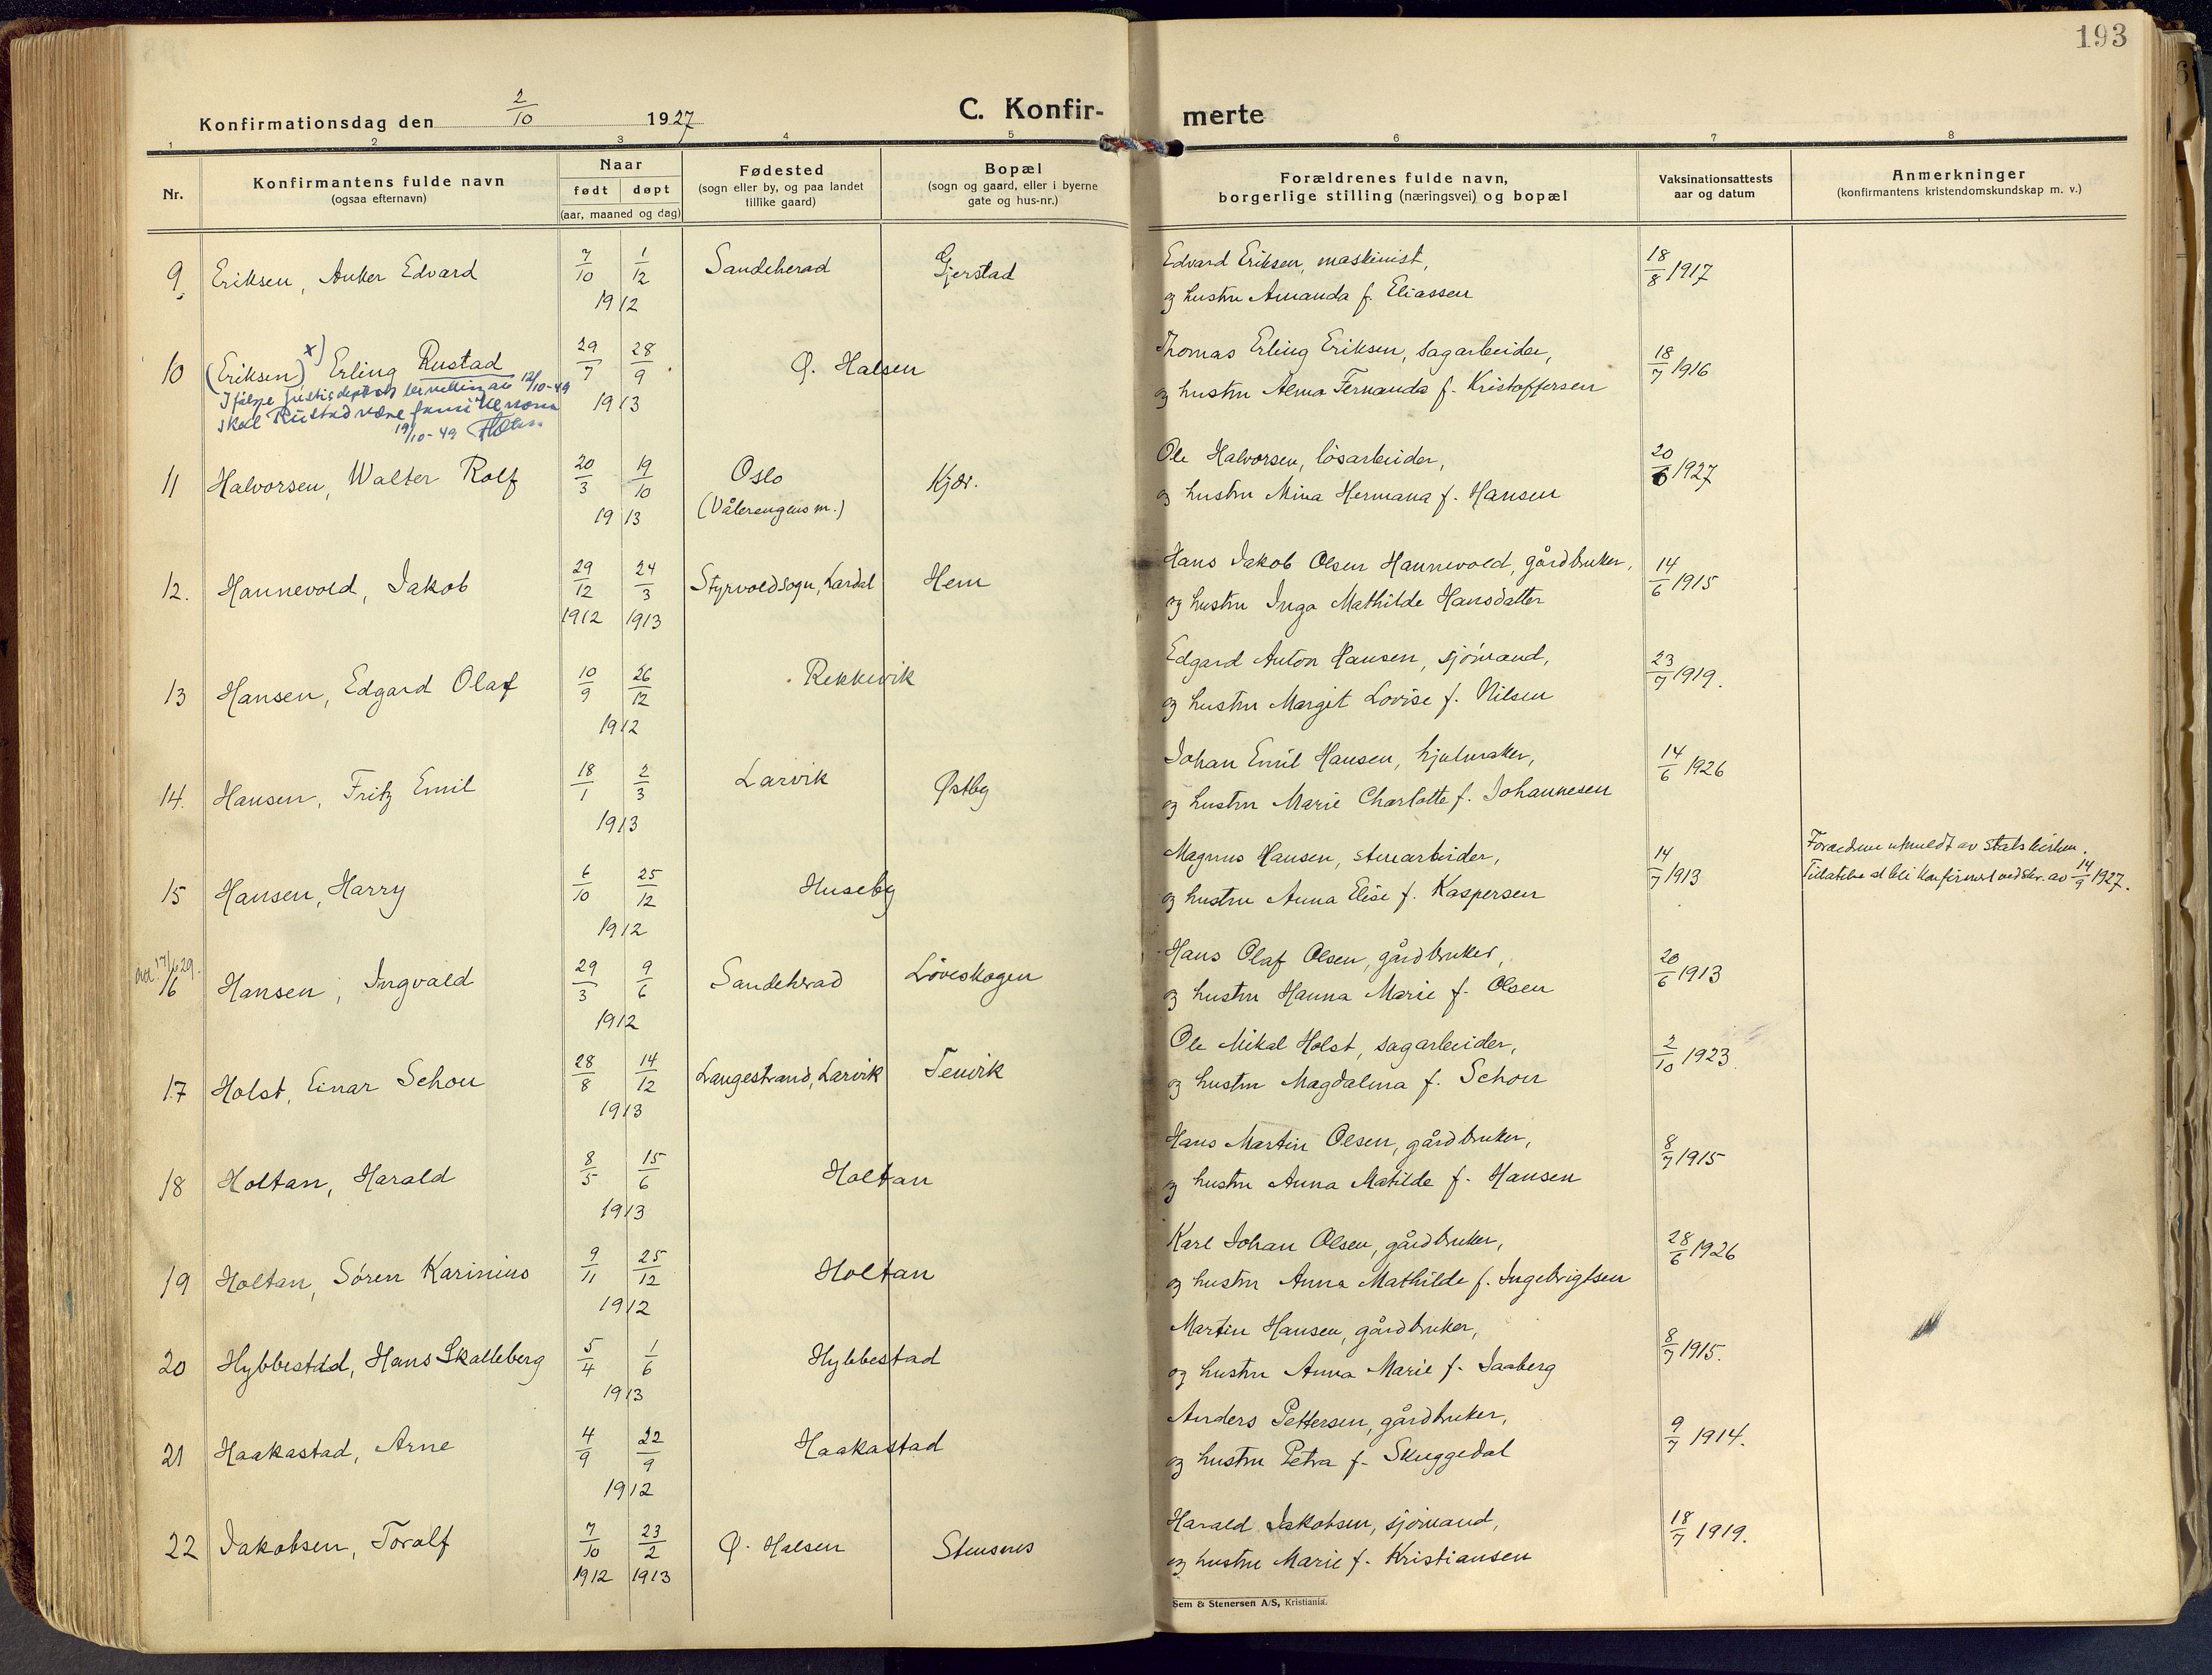 193
Konfirmationsdag den 2/10 1927
C. Konfir-
merte
1 2 3 4 5 6 7 8
Nr.
Konfirmantens fulde navn
(ogsaa efternavn)
Naar
født døpt
(aar, maaned og dag)
Fødested
(sogn eller by, og paa landet
tillike gaard)
Bopæl
(sogn og gaard, eller i byerne
gate og hus-nr.)
Forældrenes fulde navn,
borgerlige stilling (næringsvei) og bopæl
Vaksinationsattests
aar og datum
Anmerkninger
(konfirmantens kristendomskundskap m. v.)
9 Eriksen, Anker Edvard 7/10 1/12 1912 Sandeherad Gjerstad
Edvard Eriksen, maskinist, 18/8 1917
og hustru Amanda f. Eliassen
10 (Eriksen) x) Erling Rustad 29/7 28/9 1913 Ø. Halsen
I følge justisdept. bevilling av 12/10-49
skal Rustad være familienavn
19/10-49
Thomas Erling Eriksen, sagarbeider, 18/7 1916
og hustru Alma Fernanda f. Kristoffersen
11 Halvorsen, Walter Rolf 20/3 19/10 1913 Oslo Kjær.
(Vålerengens m.)
Ole Halvorsen, løsarbeider, 20/6 1927
og hustru Mina Hermana f. Hansen
12. Hannevold, Jakob 29/12 1912 24/3 1913 Styrvoldsogn, Lardal Hem
Hans Jakob Olsen Hannevold, gårdbruker, 14/6 1915
og hustru Inga Mathilde Hansdatter
13 Hansen, Edgard Olaf 10/9 26/12 1912 Rekkevik
Edgard Anton Hansen, sjømand, 23/7 1919.
og hustru Margit Lovise f. Nilsen
14. Hansen, Fritz Emil 18/1 2/3 1913 Larvik Østby
Johan Emil Hansen, hjulmaker, 14/6 1926
og hustru Marie Charlotte f. Johannesen
15 Hansen, Harry 6/10 25/12 1912 Huseby
Magnus Hansen, stenarbeider, 14/7 1913
og hustru Anna Elise f. Kaspersen
Forældrene utmeldt av statskirken.
Tillatelse at bli konfirmert ved skr. av 14/9 1927.
17/6 29.
16 Hansen, Ingvald 29/3 9/6 1912 Sandeherad Løveskogen
Hans Olaf Olsen, gårdbruker, 20/6 1913
og hustru Hanna Marie f. Olsen
17 Holst, Einar Schou 28/8 14/12 1913 Langestrand, Larvik Tenvik
Ole Mikal Holst, sagarbeider, 2/10 1923
og hustru Magdalena f. Schou
18 Holtan, Harald 8/5 15/6 1913 Holtan
Hans Martin Olsen, gårdbruker, 8/7 1915
og hustru Anna Matilde f. Hansen
19 Holtan, Søren Karinius 9/11 25/12 1912 Holtan
Karl Johan Olsen, gårdbruker, 28/6 1926
og hustru Anna Mathilde f. Ingebrigtsen
20 Hybbestad, Hans Skalleberg 5/4 1/6 1913 Hybbestad
Martin Hansen, gårdbruker, 8/7 1915.
og hustru Anna Marie f. Jaaberg
21 Haakastad, Arne 4/9 22/9 1912 Haakastad
Anders Pettersen, gårdbruker, 9/7 1914.
og hustru Petra f. Skuggedal
22 Jakobsen, Toralf 7/10 1912 23/2 1913 Ø. Halsen Stensnes
Harald Jakobsen, sjømand, 18/7 1919.
og hustru Marie f. Kristiansen
Sem & Stenersen A/S, Kristiania.